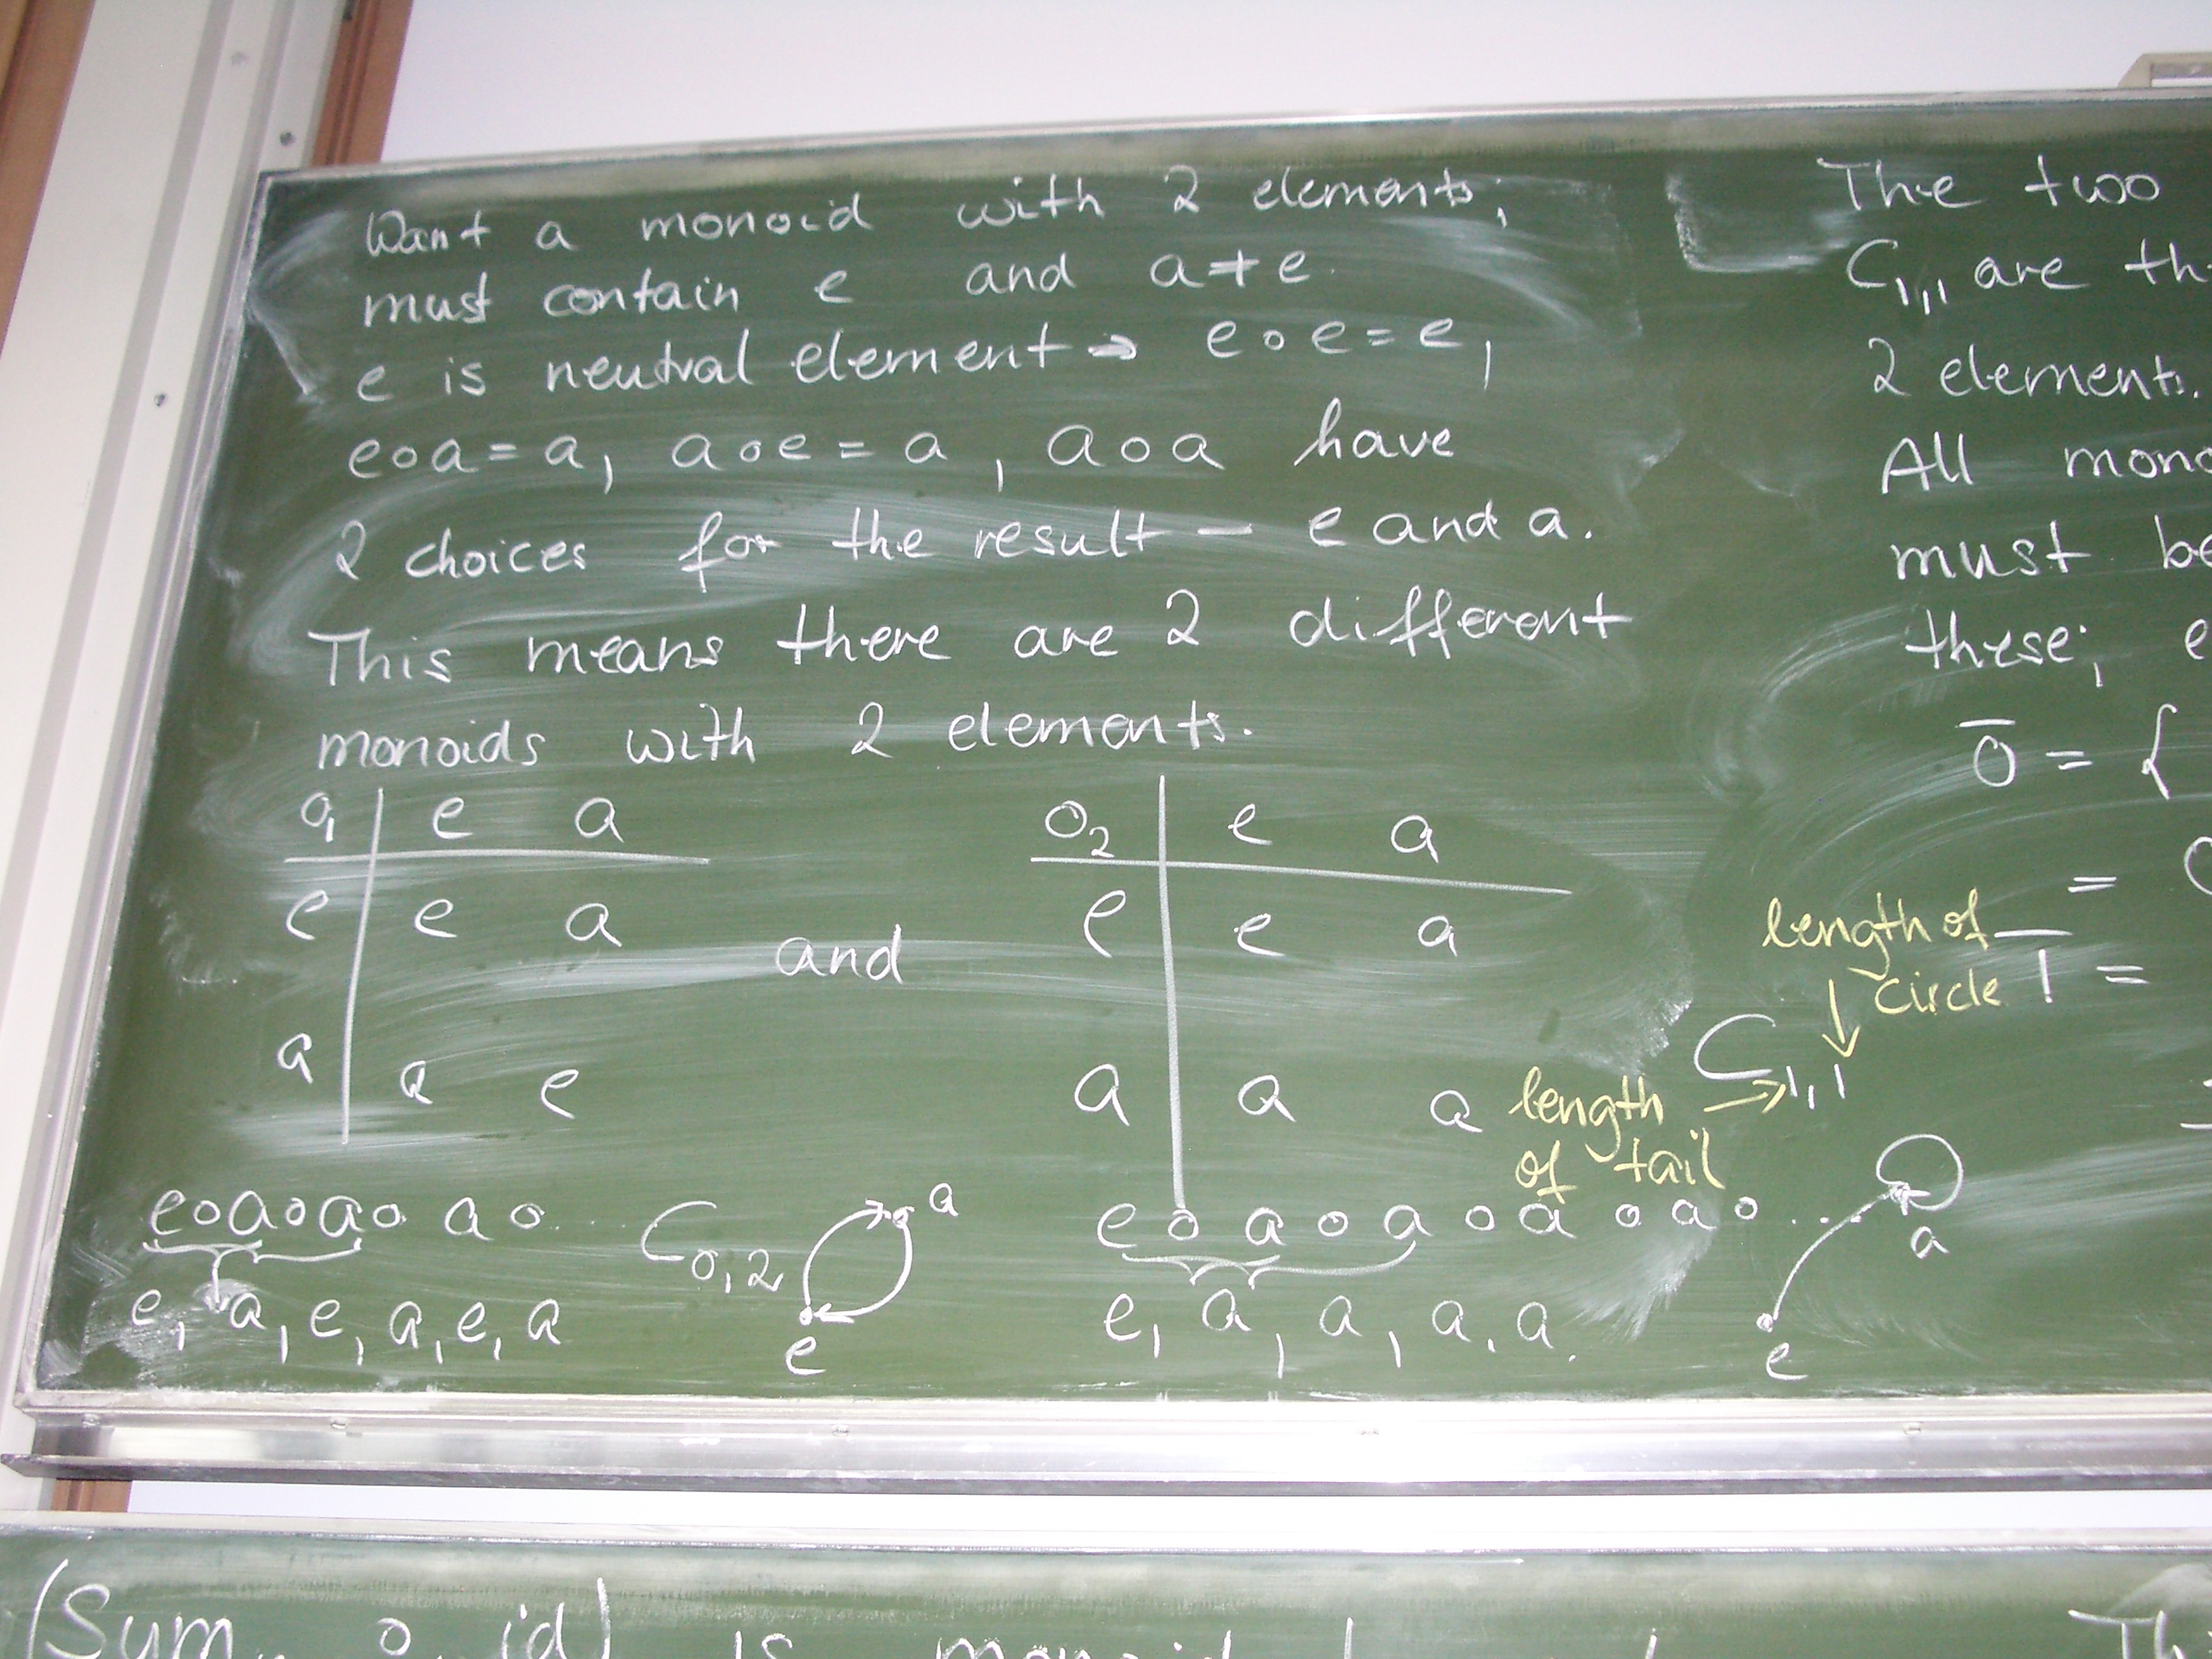 Want a monoid with 2 elements;
must contain e and a ≠ e.
e is neutral element → e∘e = e,
e∘a = a, a∘e = a, a∘a have
2 choices for the result – e and a.
This means there are 2 different
monoids with 2 elements.
∘₁ | e a
e | e a
a | a e
and
∘₂ | e a
e | e a
a | a a
e∘a∘a∘a∘...
e, a, e, a, e, a
C₀,₂
a
e
e∘a∘a∘a∘a∘....
e, a, a, a, a.
length of tail
C₁,₁
length of circle
a
e
The two
C₁,₁ are
2 elements.
All
must be
these;
0̅ = {
=
1̅ =
(Sym, ∘, id) is